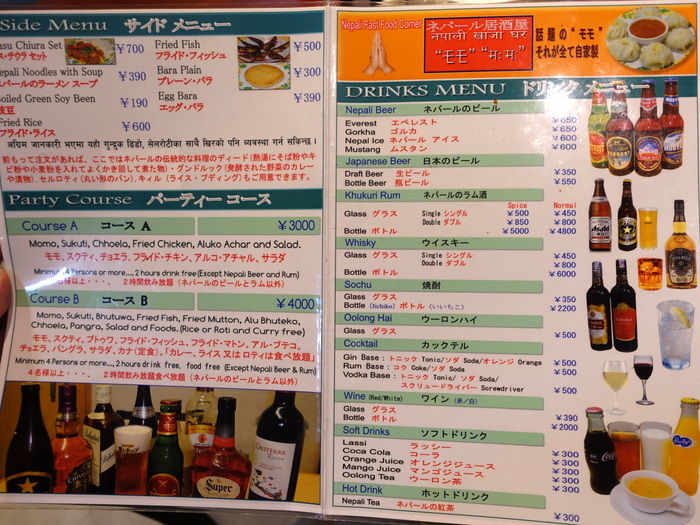 Side Menu サイド メニュー
asu Chiura Set ¥700
ス・チウラ セット
epali Noodles with Soup ¥390
パールのラーメン スープ
oiled Green Soy Been ¥190
枝豆
Fried Rice ¥600
フライド・ライス
Fried Fish ¥500
フライド・フィッシュ
Bara Plain ¥300
プレーン・バラ
Egg Bara ¥390
エッグ・バラ
अग्रिम जानकारी भएमा यहाँ गुन्द्रुक ढिंडो, सेलरोटीका साथै खिरको पनि व्यवस्था गर्न सकिन्छ।
前もって注文があれば、ここではネパールの伝統的な料理のディード(熱湯にそば粉やキ
ビ粉や小麦粉を入れてよくかき回して煮た物)・グンドルック(発酵された野菜のカレー
や漬物)、セルロティ(丸い形のパン)、キィル (ライス・プディング)もご用意できます。
Party Course パーティー コース
Course A コース A ¥3000
Momo, Sukuti, Chhoela, Fried Chicken, Aluko Achar and Salad.
モモ、スクティ、チョエラ、フライド・チキン、アルコ・アチャル、サラダ
Minimum 4 Persons or more..., 2 hours drink free(Except Nepali Beer and Rum)
4名様以上・・・、 2時間飲み放題(ネパールのビールとラム以外)
Course B コース B ¥4000
Momo, Sukuti, Bhutuwa, Fried Fish, Fried Mutton, Alu Bhuteko,
Chhoela, Pangra, Salad and Foods. (Rice or Roti and Curry free)
モモ、スクティ、ブトゥワ、フライド・フィッシュ、フライド・マトン、アル・ブテコ、
チョエラ、パングラ、サラダ、カナ(定食)。「カレー、ライス 又は ロティは食べ放題」
Minimum 4 Persons or more..., 2 hours drink free, food free (Except Nepali Beer & Rum)
4名様以上・・・、 2時間飲み放題食べ放題 (ネパールのビールとラム以外)
Super
Nepali Fast Food Corner
ネパール居酒屋
नेपाली खाजा घर
“モモ” “मः मः”
話題の“モモ”
それが全て自家製
DRINKS MENU ドリンク メニュー
Nepali Beer ネパールのビール
Everest エベレスト ¥650
Gorkha ゴルカ ¥650
Nepal Ice ネパール アイス ¥650
Mustang ムスタン ¥650
Japanese Beer 日本のビール
Draft Beer 生ビール ¥350
Bottle Beer 瓶ビール ¥550
Khukuri Rum ネパールのラム酒
Spice Normal
Glass グラス Single シングル ¥500 ¥450
Double ダブル ¥850 ¥800
Bottle ボトル ¥5000 ¥4800
Whisky ウイスキー
Glass グラス Single シングル ¥450
Double ダブル ¥800
Bottle ボトル ¥6000
Sochu 焼酎
Glass グラス ¥350
Bottle (Iichiko) ボトル (いいちこ) ¥2200
Oolong Hai ウーロンハイ
Glass グラス ¥500
Cocktail カックテル
Gin Base : トニック Tonic/ ソダ Soda/オレンジ Orange ¥500
Rum Base : コク Coke/ソダ Soda ¥500
Vodka Base : トニック Tonic/ ソダ Soda/
スクリュードライバー Screwdriver ¥500
Wine (Red/White) ワイン (赤/白)
Glass グラス ¥390
Bottle ボトル ¥2000
Soft Drinks ソフトドリンク
Lassi ラッシー ¥300
Coca Cola コーラ ¥300
Orange Juice オレンジジュース ¥300
Mango Juice マンゴジュース ¥300
Oolong Tea ウーロン茶 ¥300
Hot Drink ホットドリンク
Nepali Tea ネパールの紅茶 ¥300
Asahi